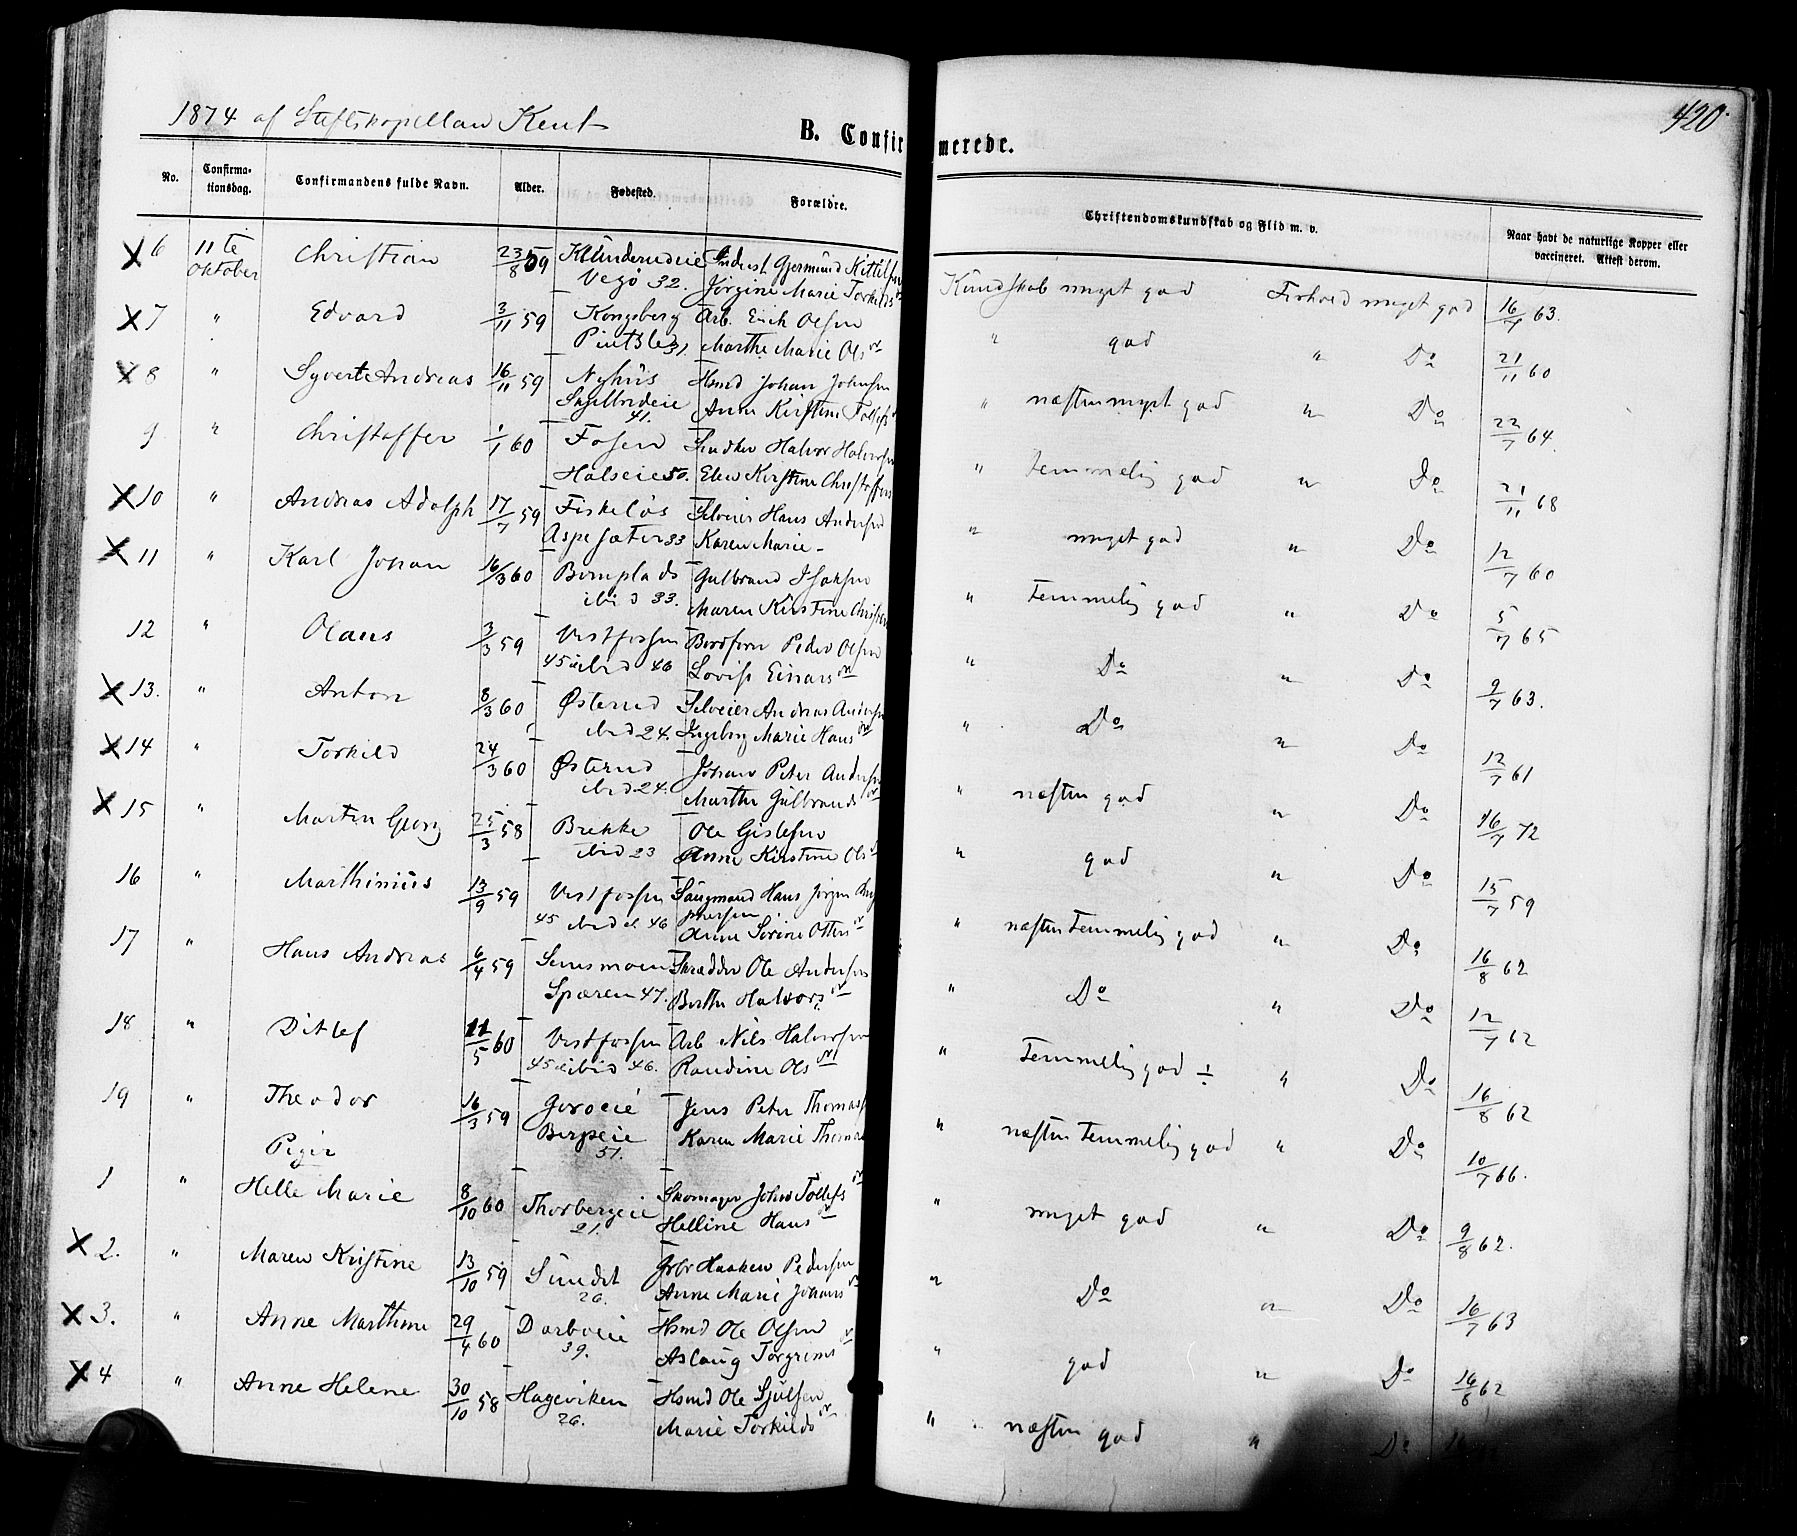 1874 af Stiftskapellan Kent
B. Confirmerede.
420.
No.
Confirmationsdag.
Confirmandens fulde Navn.
Alder.
Fødested.
Forældre.
Christendomskundskab og Flid m. v.
Naar havt de naturlige Kopper eller vaccineret. Attest derom.
X 6 11te Oktober Christian 23/8 59 Vegø 32. Gjermund Kittilsen Jørgine Marie Torkilds Kundskab meget god Forhold meget god 16/7 63.
X 7 " Edvard 3/11 59 Kongsberg 31. Arb. Erich Olsen Marthe Marie Olsdr " god " Do 21/11 60
X 8 " Syverte Andreas 16/11 59 Nyhus 41. Hsmd Johan Johnsen Anne Kirstine Tollefs " næsten meget god " Do 22/7 64.
9 " Christoffer 1/1 60 Fosen Halseie 50. Halvor Halvorsen Elen Kirstine Christoffers " temmelig god " Do 21/11 68
X 10 " Andreas Adolph 17/7 59 Fiskeløs Aspesæter 33 Selveier Hans Andersen Karen Marie - " meget god " Do 12/7 60
X 11 " Karl Johan 16/3 60 ibid 33. Gulbrand Isaksen Maren Kirstine " Temmelig god " Do 5/7 65
12 " Olaus 3/3 59 Vestfossen 45 ibid 46 Peder Olsen Lovise Einarsdr " Do " Do 9/7 63.
X 13. " Anton 8/3 60 Østerud ibid 24. Selveier Andreas Andersen Ingeborg Marie Hansdr " Do " Do 12/7 61
X 14 " Torkild 24/3 60 Østerud ibid 24. Johan Peter Andersen Marthe Gulbrandsdr " næsten god " Do 16/7 72
X 15 " Martin Georg 25/3 58 Brekke ibid 23 Ole Gislesen Anne Kirstine Olsdr " god " Do 15/7 59
16 " Marthinius 13/9 59 Vestfossen 45 ibid 46 Saugmand Hans Jørgen Anne Sørine Ottersdr " næsten Temmelig god " Do 16/8 62
17 " Hans Andreas 6/4 59 Semsmoen Spæren 47. Skrædder Ole Andersen Berthe Halvorsdr " Do " Do 12/7 62
18 " Ditlef 11/5 60 Vestfossen 45 ibid 46. Arb Nils Halvorsen Randine Olsdr " Temmelig god ÷ " Do 16/8 62
19 " Theodor 16/3 59 37. Jens Peter Thomas Karen Marie Thomas " næsten Temmelig god " Do 10/7 66.
Piger
1 " Helle Marie 8/10 60 Thorbergeie 21. Skomager Johns Tollefsdr Helline Hansdr " meget god " Do 9/8 62.
X 2. " Maren Kristine 13/10 59 Sundet 26. Haaken Pedersen Anne Marie Johansdr " Do " Do 16/7 63
X 3. " Anne Marthine 29/4 60 Darboeie 39. Hsmd Ole Olsen Aslaug Torgrimsdr " god " Do 16/8 62
X 4 " Anne Helene 30/10 58 Hageviken 26. Hsmd Ole Sjulsen Marie Torkildsdr " næsten god " Do